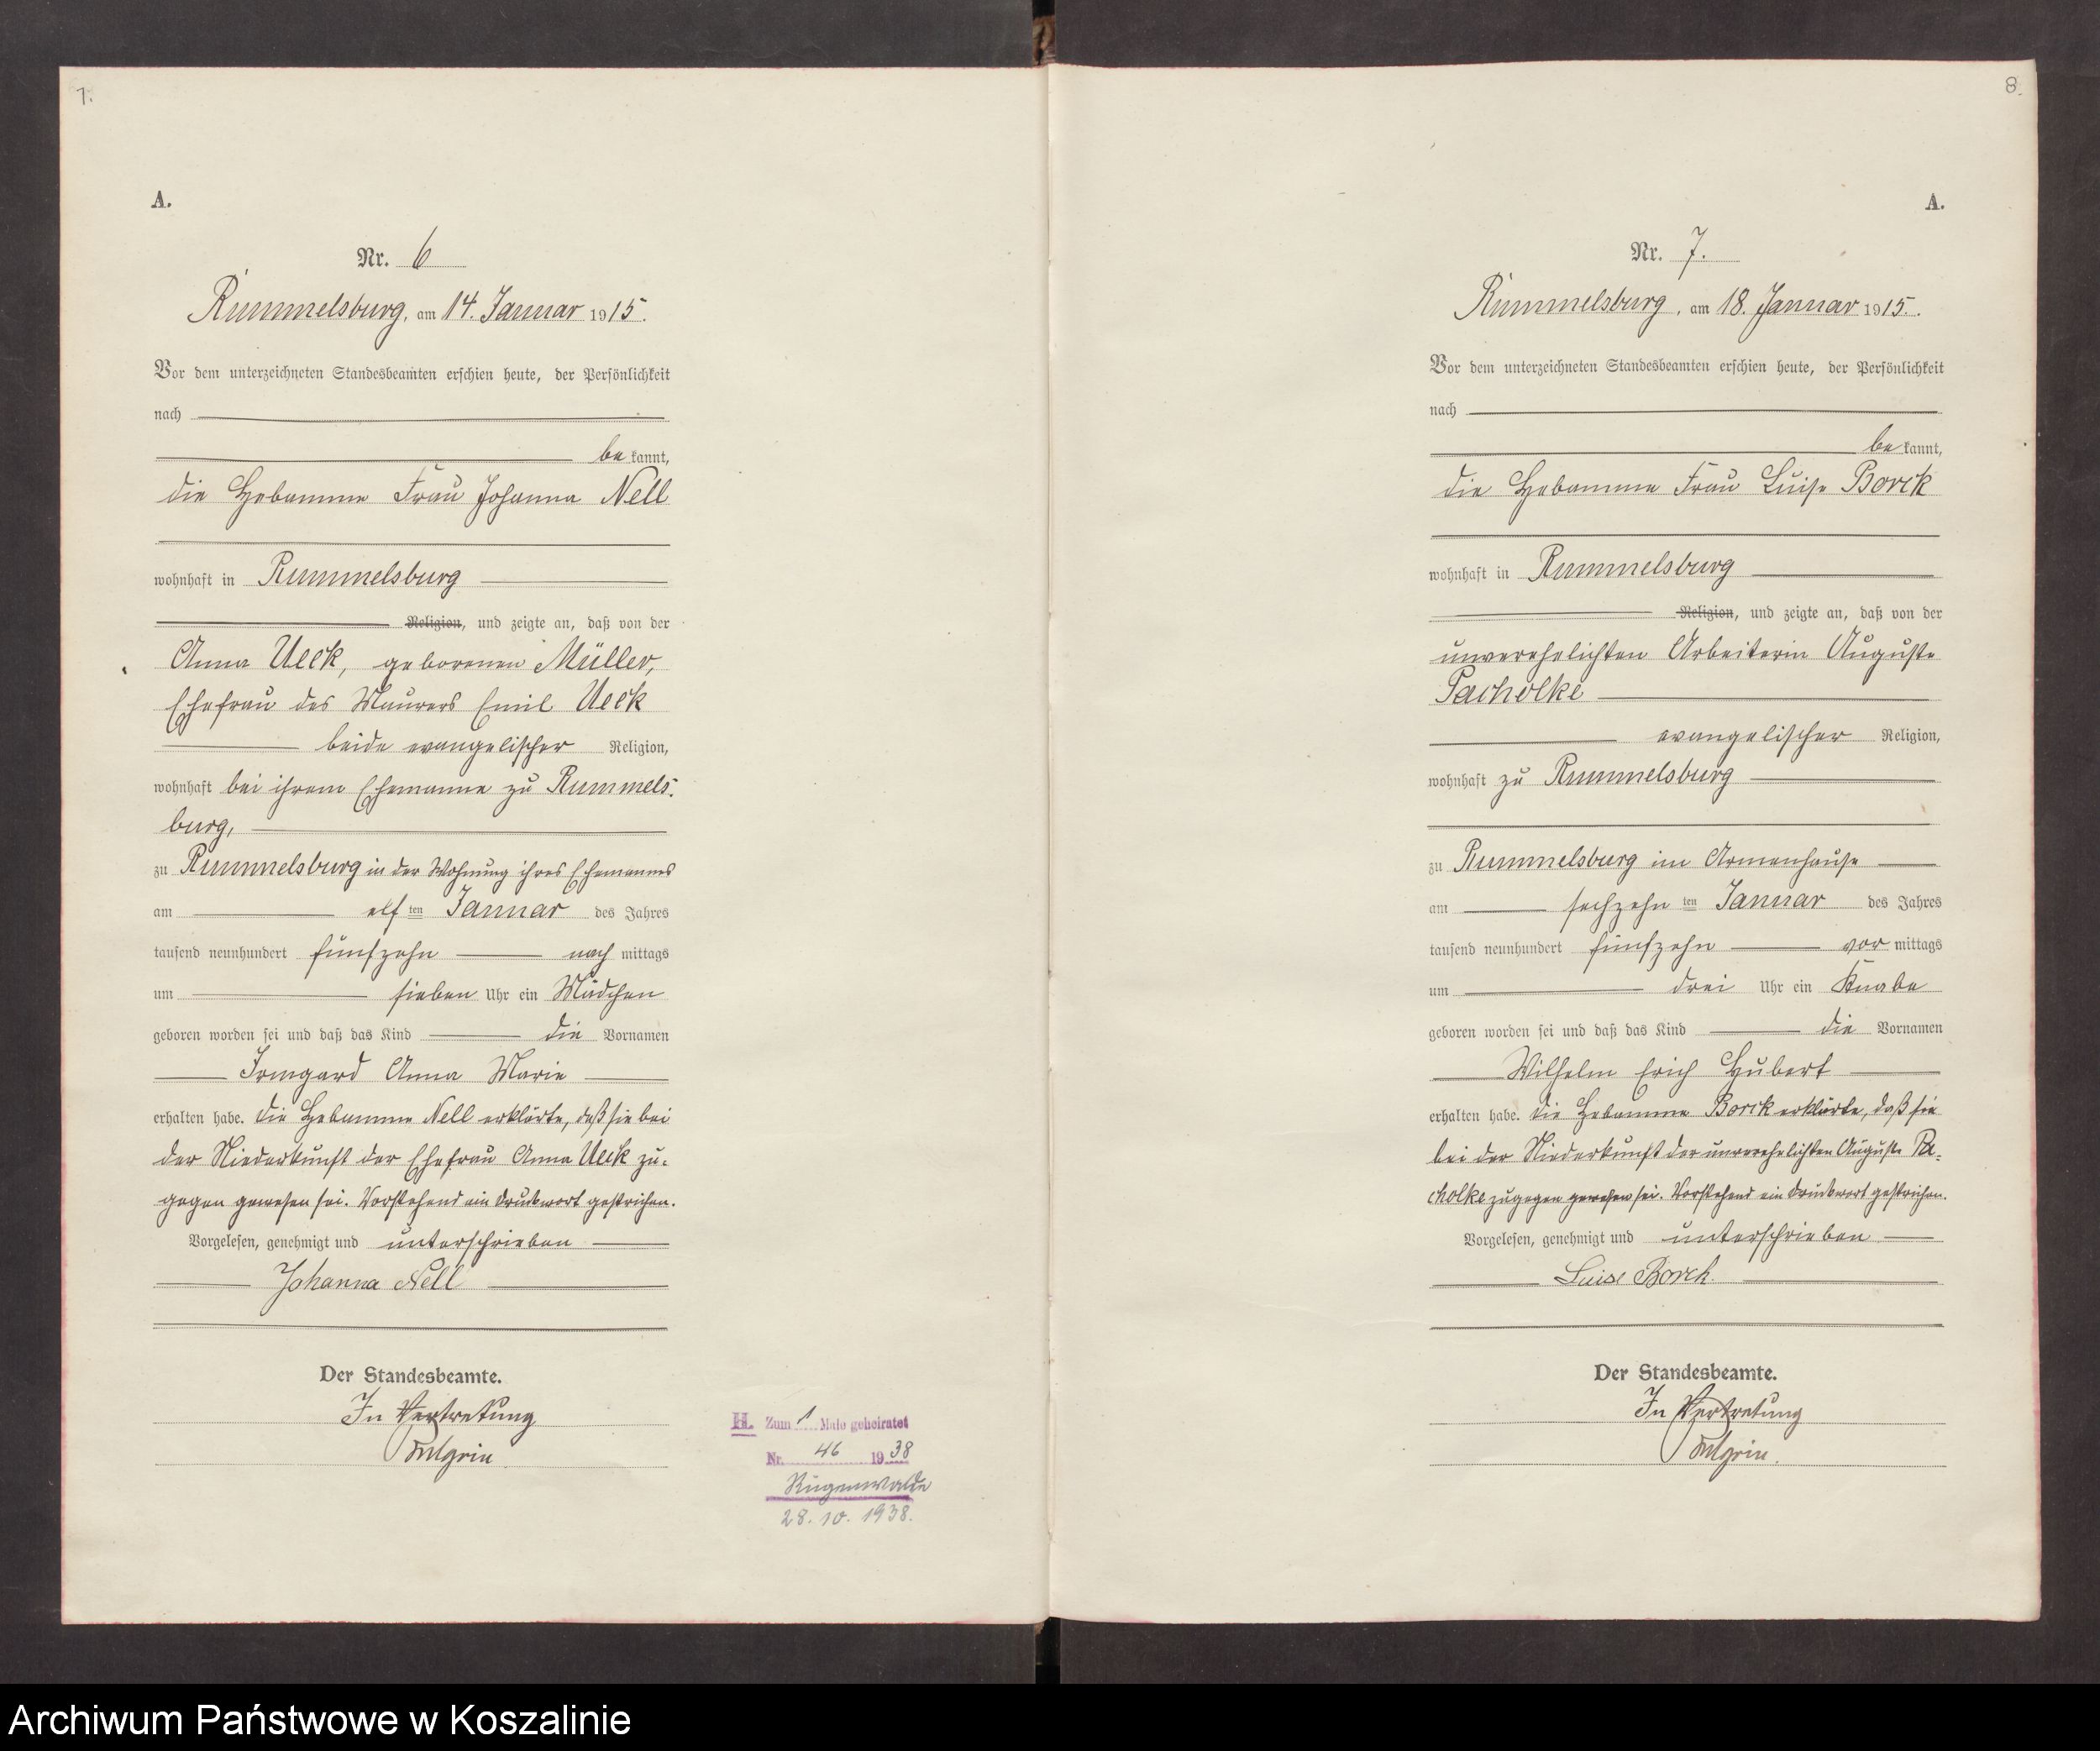 7.
A.
Nr. 6
Rummelsburg, am 14. Januar 1915.
Vor dem unterzeichneten Standesbeamten erschien heute, der Persönlichkeit
nach
be kannt,
die Hebamme Frau Johanna Nell
wohnhaft in Rummelsburg
Religion, und zeigte an, daß von der
Anna Ueck, geborenen Müller,
Ehefrau des Maurers Emil Ueck
beide evangelischer Religion,
wohnhaft bei ihrem Ehemanne zu Rummels-
burg,
zu Rummelsburg in der Wohnung ihres Ehemannes
am elf ten Januar des Jahres
tausend neunhundert fünfzehn nach mittags
um sieben Uhr ein Mädchen
geboren worden sei und daß das Kind die Vornamen
Irmgard Anna Marie
erhalten habe. Die Hebamme Nell erklärte, daß sie bei
der Niederkunft der Ehefrau Anna Ueck zu-
gegen gewesen sei. Vorstehend ein Druckwort gestrichen.
Vorgelesen, genehmigt und unterschrieben
Johanna Nell
Der Standesbeamte.
In Vertretung
H. Zum 1 Male geheiratet
Nr. 46 1938
Rügenwalde
28. 10. 1938.
8.
A.
Nr. 7.
Rummelsburg, am 18. Januar 1915.
Vor dem unterzeichneten Standesbeamten erschien heute, der Persönlichkeit
nach
be kannt,
die Hebamme Frau Luise Borck
wohnhaft in Rummelsburg
Religion, und zeigte an, daß von der
unverehelichten Arbeiterin Auguste
Pacholke
evangelischer Religion,
wohnhaft zu Rummelsburg
zu Rummelsburg im Armenhause
am sechzehn ten Januar des Jahres
tausend neunhundert fünfzehn vor mittags
um drei Uhr ein Knabe
geboren worden sei und daß das Kind die Vornamen
Wilhelm Erich Hubert
erhalten habe. Die Hebamme Borck erklärte, daß sie
bei der Niederkunft der unverehelichten Auguste Pa-
cholke zugegen gewesen sei. Vorstehend ein Druckwort gestrichen.
Vorgelesen, genehmigt und unterschrieben
Luise Borck.
Der Standesbeamte.
In Vertretung
Archiwum Państwowe w Koszalinie